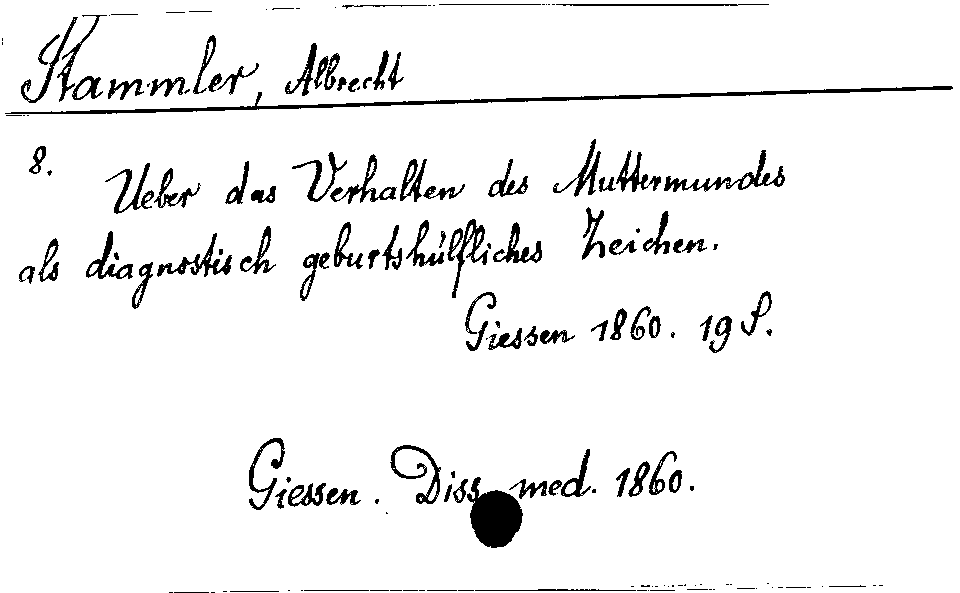 Stammler, Albrecht
8.
Ueber das Verhalten des Muttermundes
als diagnostisch geburtshülfliches Zeichen.
Giessen 1860. 19 S.
Giessen. Diss. med. 1860.